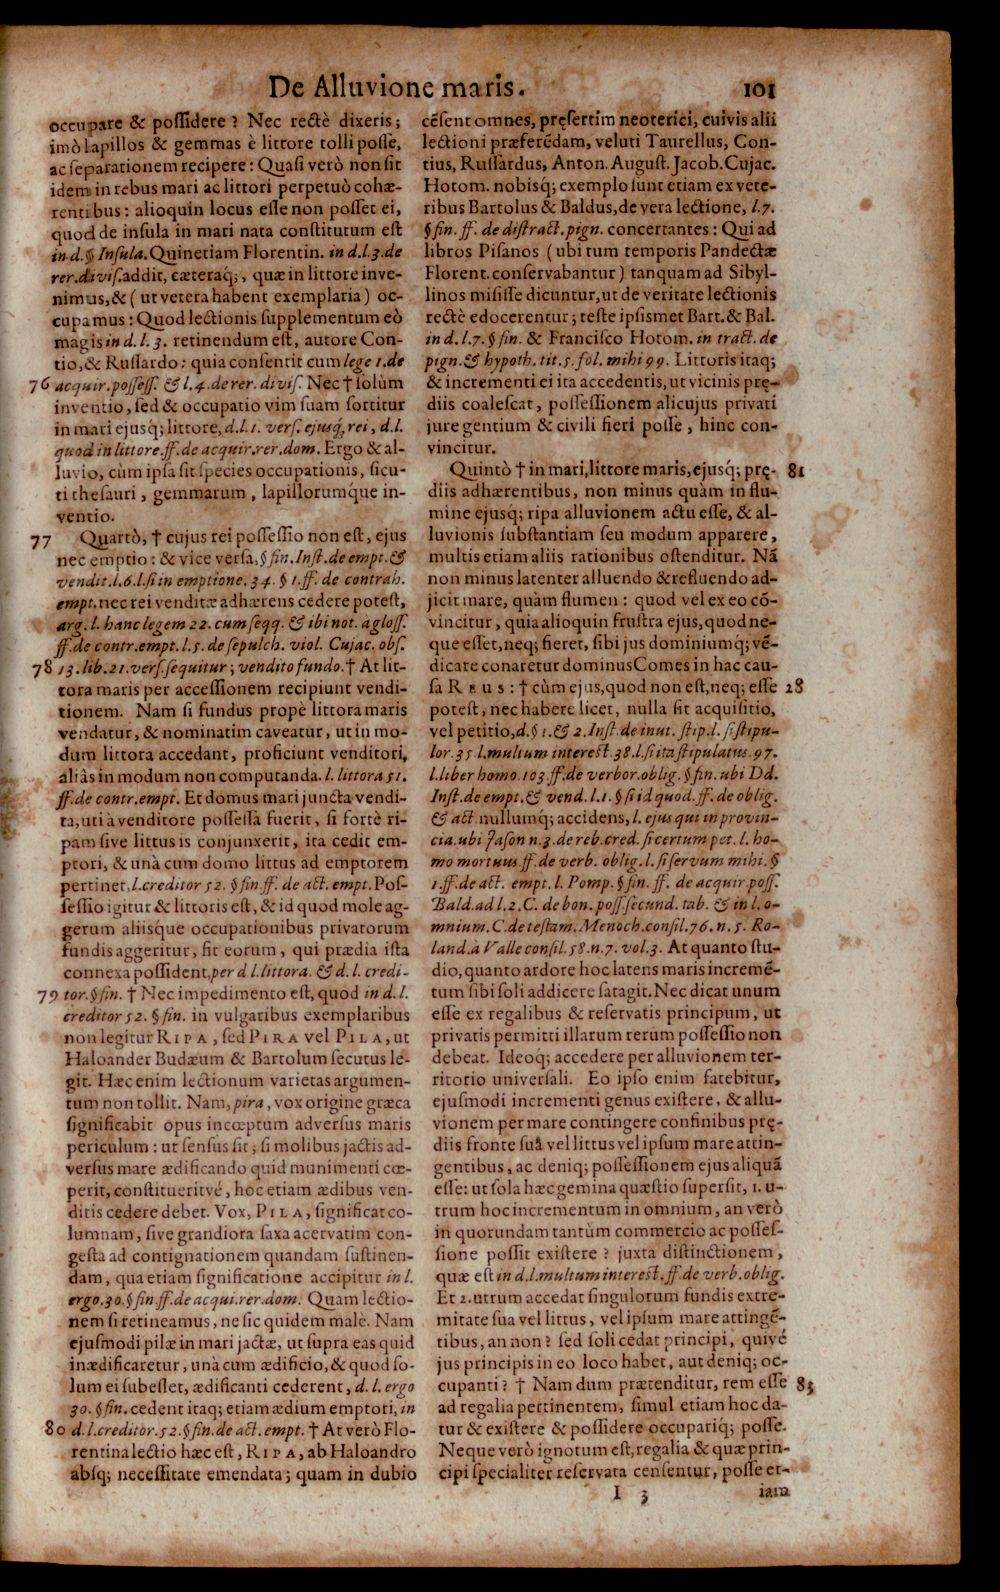 De Alluvione maris. 101
occupare & possidere? Nec rectè dixeris;
imò lapillos & gemmas è littore tolli posse,
ac separationem recipere: Quasi verò non sit
idem in rebus mari ac littori perpetuò cohæ-
rentibus: alioquin locus esse non posset ei,
quod de insula in mari nata constitutum est
in d. § Insula. Quinetiam Florentin. in d.l.3. de
rer. divis. addit, cæteraq;, quæ in littore inve-
nimus, & (ut vetera habent exemplaria) oc-
cupamus: Quod lectionis supplementum eò
magis in d. l. 3. retinendum est, autore Con-
tio, & Russardo: quia consentit cum lege 1. de
76 acquir. possess. & l. 4. de rer. divis. Nec † solùm
inventio, sed & occupatio vim suam sortitur
in mari ejusq; littore, d.l. 1. vers. ejusq́; rei, d.l.
quod in littore. ff. de acquir. rer. dom. Ergo & al-
luvio, cùm ipsa sit species occupationis, sicu-
ti thesauri, gemmarum, lapillorumque in-
ventio.
77 Quartò, † cujus rei possessio non est, ejus
nec emptio: & vice versa, § fin. Inst. de empt. &
vendit. l. 6. l. si in emptione. 34. § 1. ff. de contrah.
empt. nec rei venditæ adhærens cedere potest,
arg. l. hanc legem 22. cum seqq. & ibi not. a gloss.
ff. de contr. empt. l. 5. de sepulch. viol. Cujac. obs.
78 13. lib. 21. vers. sequitur; vendito fundo. † At lit-
tora maris per accessionem recipiunt vendi-
tionem. Nam si fundus propè littora maris
vendatur, & nominatim caveatur, ut in mo-
dum littora accedant, proficiunt venditori,
aliàs in modum non computanda. l. littora 51.
ff. de contr. empt. Et domus mari juncta vendi-
ta, uti à venditore possessa fuerit, si fortè ri-
pam sive littus is conjunxerit, ita cedit em-
ptori, & unà cum domo littus ad emptorem
pertinet, l. creditor 52. § fin. ff. de act. empt. Pos-
sessio igitur & littoris est, & id quod mole ag-
gerum aliisque occupationibus privatorum
fundis aggeritur, fit eorum, qui prædia ista
connexa possident, per d. l. littora. & d. l. credi-
79 tor. § fin. † Nec impedimento est, quod in d. l.
creditor 52. § fin. in vulgatibus exemplaribus
non legitur RIPA, sed PIRA vel PILA, ut
Haloander Budæum & Bartolum secutus le-
git. Hæc enim lectionum varietas argumen-
tum non tollit. Nam, pira, vox origine græca
significabit opus incœptum adversus maris
periculum: ut sensus sit; si molibus jactis ad-
versus mare ædificando quid munimenti cœ-
perit, constitueritvé, hoc etiam ædibus ven-
ditis cedere debet. Vox, PILA, significat co-
lumnam, sive grandiora saxa acervatim con-
gesta ad contignationem quandam sustinen-
dam, qua etiam significatione accipitur in l.
ergo. 30. § fin. ff. de acqui. rer. dom. Quam lectio-
nem si retineamus, ne sic quidem malè. Nam
ejusmodi pilæ in mari jactæ, ut supra eas quid
inædificaretur, unà cum ædificio, & quod so-
lum ei subesset, ædificanti cederent, d. l. ergo
30. § fin. cedent itaq; etiam ædium emptori, in
80 d. l. creditor. 52. § fin. de act. empt. † At verò Flo-
rentina lectio hæc est, RIPA, ab Haloandro
absq; necessitate emendata; quam in dubio
cẽsent omnes, pręsertim neoterici, cuivis alii
lectioni præferẽdam, veluti Taurellus, Con-
tius, Russardus, Anton. August. Jacob. Cujac.
Hotom. nobisq́; exemplo sunt etiam ex vete-
ribus Bartolus & Baldus, de vera lectione, l. 7.
§ fin. ff. de distract. pign. concertantes: Qui ad
libros Pisanos (ubi tum temporis Pandectæ
Florent. conservabantur) tanquam ad Sibyl-
linos misisse dicuntur, ut de veritate lectionis
rectè edocerentur; teste ipsismet Bart. & Bal.
in d. l. 7. § fin. & Francisco Hotom. in tract. de
pign. & hypoth. tit. 5. fol. mihi 99. Littoris itaq;
& incrementi ei ita accedentis, ut vicinis prę-
diis coalescat, possessionem alicujus privati
jure gentium & civili fieri posse, hinc con-
vincitur.
Quintò † in mari, littore maris, ejusq́; prę- 81
diis adhærentibus, non minus quàm in flu-
mine ejusq; ripa alluvionem actu esse, & al-
luvionis substantiam seu modum apparere,
multis etiam aliis rationibus ostenditur. Nã
non minus latenter alluendo & refluendo ad-
jicit mare, quàm flumen: quod vel ex eo cõ-
vincitur, quia alioquin frustra ejus, quod ne-
que esset, neq; fieret, sibi jus dominiumq́; vẽ-
dicare conaretur dominus Comes in hac cau-
sa REUS: † cùm ejus, quod non est, neq; esse 28
potest, nec habere licet, nulla sit acquisitio,
vel petitio, d. § 1. & 2. Inst. de inut. stip. l. si stipu-
lor. 35. l. multum interest. 38. l. si ita stipulatus. 97.
l. liber homo. 103. ff. de verbor. oblig. § fin. ubi Dd.
Inst. de empt. & vend. l. 1. § si id quod. ff. de oblig.
& act. nullumq́; accidens, l. ejus qui in provin-
cia. ubi Jason n. 3. de reb. cred. si certum pet. l. ho-
mo mortuus. ff. de verb. oblig. l. si servum mihi. §
1. ff. de act. empt. l. Pomp. § fin. ff. de acquir. poss.
Bald. ad l. 2. C. de bon. poss. secund. tab. & in l. o-
mnium. C. de testam. Menoch. consil. 76. n. 5. Ro-
land. à Valle consil. 58. n. 7. vol. 3. At quanto stu-
dio, quanto ardore hoc latens maris incremẽ-
tum sibi soli addicere satagit. Nec dicat unum
esse ex regalibus & reservatis principum, ut
privatis permitti illarum rerum possessio non
debeat. Ideoq; accedere per alluvionem ter-
ritorio universali. Eo ipso enim fatebitur,
ejusmodi incrementi genus existere, & allu-
vionem per mare contingere confinibus prę-
diis fronte suâ vel littus vel ipsum mare attin-
gentibus, ac deniq; possessionem ejus aliquã
esse: ut sola hæc gemina quæstio supersit, 1. u-
trum hoc incrementum in omnium, an verò
in quorundam tantùm commercio ac posses-
sione possit existere? juxta distinctionem,
quæ est in d. l. multum interest. ff. de verb. oblig.
Et 2. utrum accedat singulorum fundis extre-
mitate sua vel littus, vel ipsum mare attingẽ-
tibus, an non? sed soli cedat principi, quivé
jus principis in eo loco habet, aut deniq; oc-
cupanti? † Nam dum prætenditur, rem esse 83
ad regalia pertinentem, simul etiam hoc da-
tur & existere & possidere occupariq; posse.
Neque verò ignotum est, regalia & quæ prin-
cipi specialiter reservata censentur, posse et-
I 3 iam